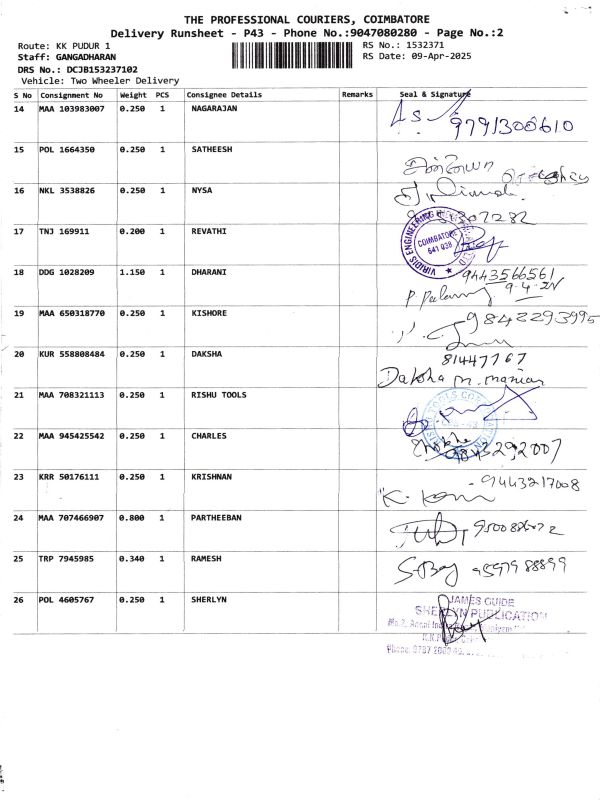 THE PROFESSIONAL COURIERS, COIMBATORE
Delivery Runsheet - P43 - Phone No.:9047080280 - Page No.:2
Route: KK PUDUR 1 RS No.: 1532371
Staff: GANGADHARAN RS Date: 09-Apr-2025
DRS No.: DCJB153237102
Vehicle: Two Wheeler Delivery
S No Consignment No Weight PCS Consignee Details Remarks Seal & Signature
14 MAA 103983007 0.250 1 NAGARAJAN
9791300610
15 POL 1664350 0.250 1 SATHEESH
16 NKL 3538826 0.250 1 NYSA
17 TNJ 169911 0.200 1 REVATHI
VIRIDIS ENGINEERING
COIMBATORE
641 038
18 DDG 1028209 1.150 1 DHARANI
9443566561
19 MAA 650318770 0.250 1 KISHORE
9842293995
20 KUR 558808484 0.250 1 DAKSHA
81447767
Daksha m. manian
21 MAA 708321113 0.250 1 RISHU TOOLS
22 MAA 945425542 0.250 1 CHARLES
9843292007
23 KRR 50176111 0.250 1 KRISHNAN
9443217008
24 MAA 707466907 0.800 1 PARTHEEBAN
25 TRP 7945985 0.340 1 RAMESH
9597988899
26 POL 4605767 0.250 1 SHERLYN
JAMES GUIDE
SHERLYN PUBLICATION